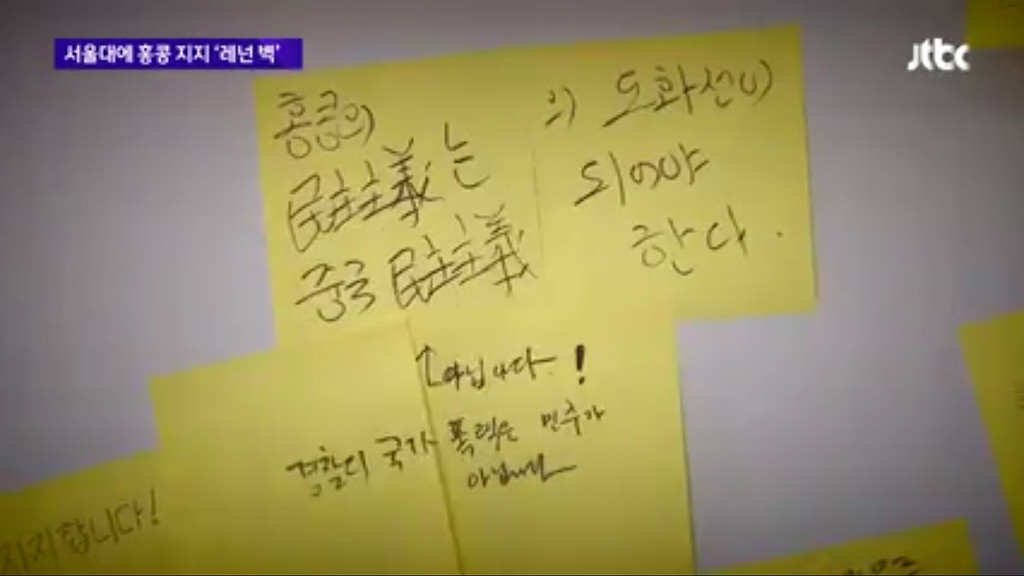 서울대에 홍콩 지지 '레넌 벽'
jtbc
홍콩의
民主主義는
중국 民主主義
의 도화선이
되어야
한다.
↑아닙니다!
경찰의 국가 폭력은 민주가
아닙니다
지지합니다!